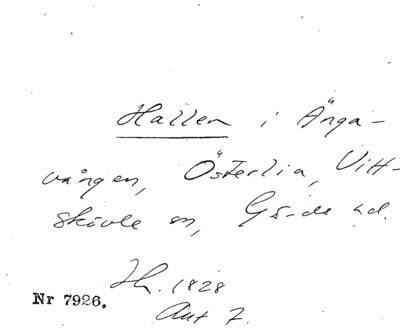 Hallen i Änga-
vången, Österlia, Vitt-
skövle sn, Gärds hd.
Sk. 1828
Akt 7.
Nr 7926.